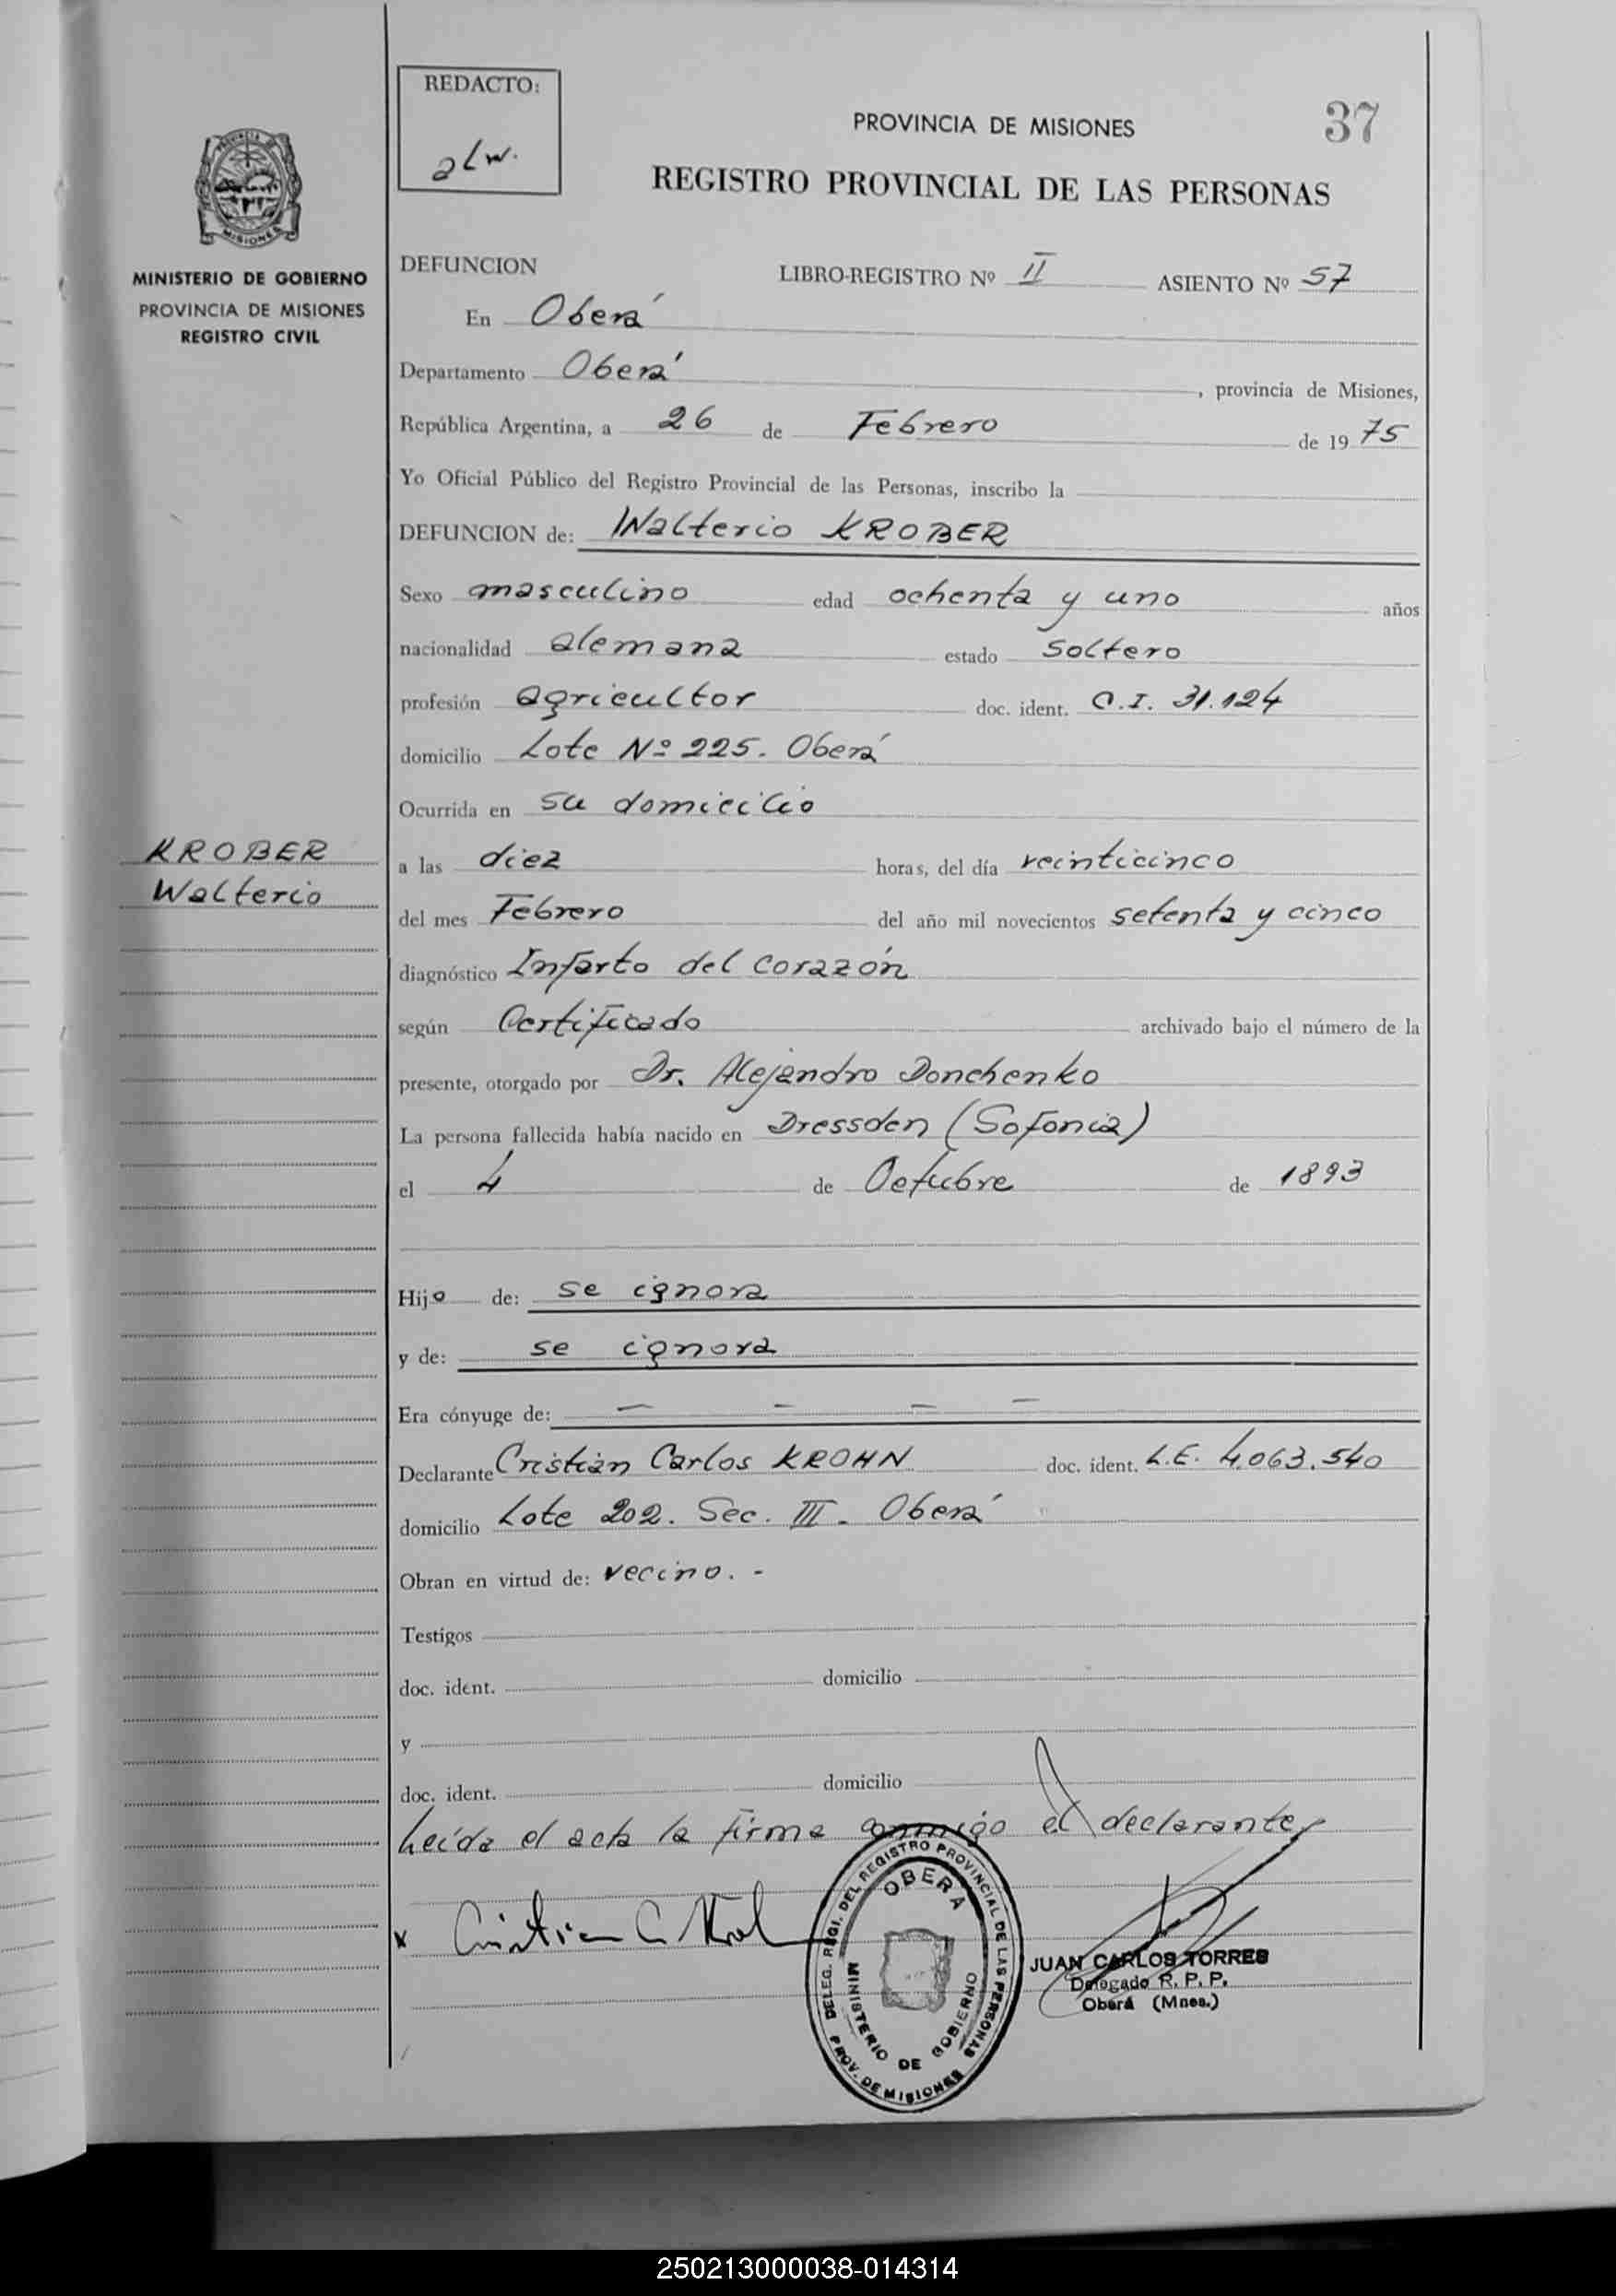 REDACTO:
alw.
37
PROVINCIA DE MISIONES
REGISTRO PROVINCIAL DE LAS PERSONAS
MINISTERIO DE GOBIERNO
PROVINCIA DE MISIONES
REGISTRO CIVIL
DEFUNCION LIBRO-REGISTRO Nº II ASIENTO Nº 57
En Oberá
Departamento Oberá, provincia de Misiones,
República Argentina, a 26 de Febrero de 1975
Yo Oficial Público del Registro Provincial de las Personas, inscribo la
DEFUNCION de: Walterio KROBER
Sexo masculino edad ochenta y uno años
nacionalidad alemana estado soltero
profesión agricultor doc. ident. C.I. 31.124
domicilio Lote Nº 225. Oberá
Ocurrida en su domicilio
KROBER
Walterio
a las diez horas, del día veinticinco
del mes Febrero del año mil novecientos setenta y cinco
diagnóstico Infarto del corazón
según Certificado archivado bajo el número de la
presente, otorgado por Dr. Alejandro Donchenko
La persona fallecida había nacido en Dressden (Sofonia)
el 4 de Octubre de 1893
Hijo de: se ignora
y de: se ignora
Era cónyuge de: - - - -
Declarante Cristián Carlos KROHN doc. ident. L.E. 4.063.540
domicilio Lote 202. Sec. III. Oberá
Obran en virtud de: vecino. -
Testigos
doc. ident. domicilio
y
doc. ident. domicilio
Leída el acta la firma conmigo el declarante
x Cristian C Krohn
DELEG. REGI. DEL REGISTRO PROVINCIAL DE LAS PERSONAS
OBERA
MINISTERIO DE GOBIERNO
PROV. DE MISIONES
JUAN CARLOS TORRES
Delegado R. P. P.
Oberá (Mnes.)
250213000038-014314